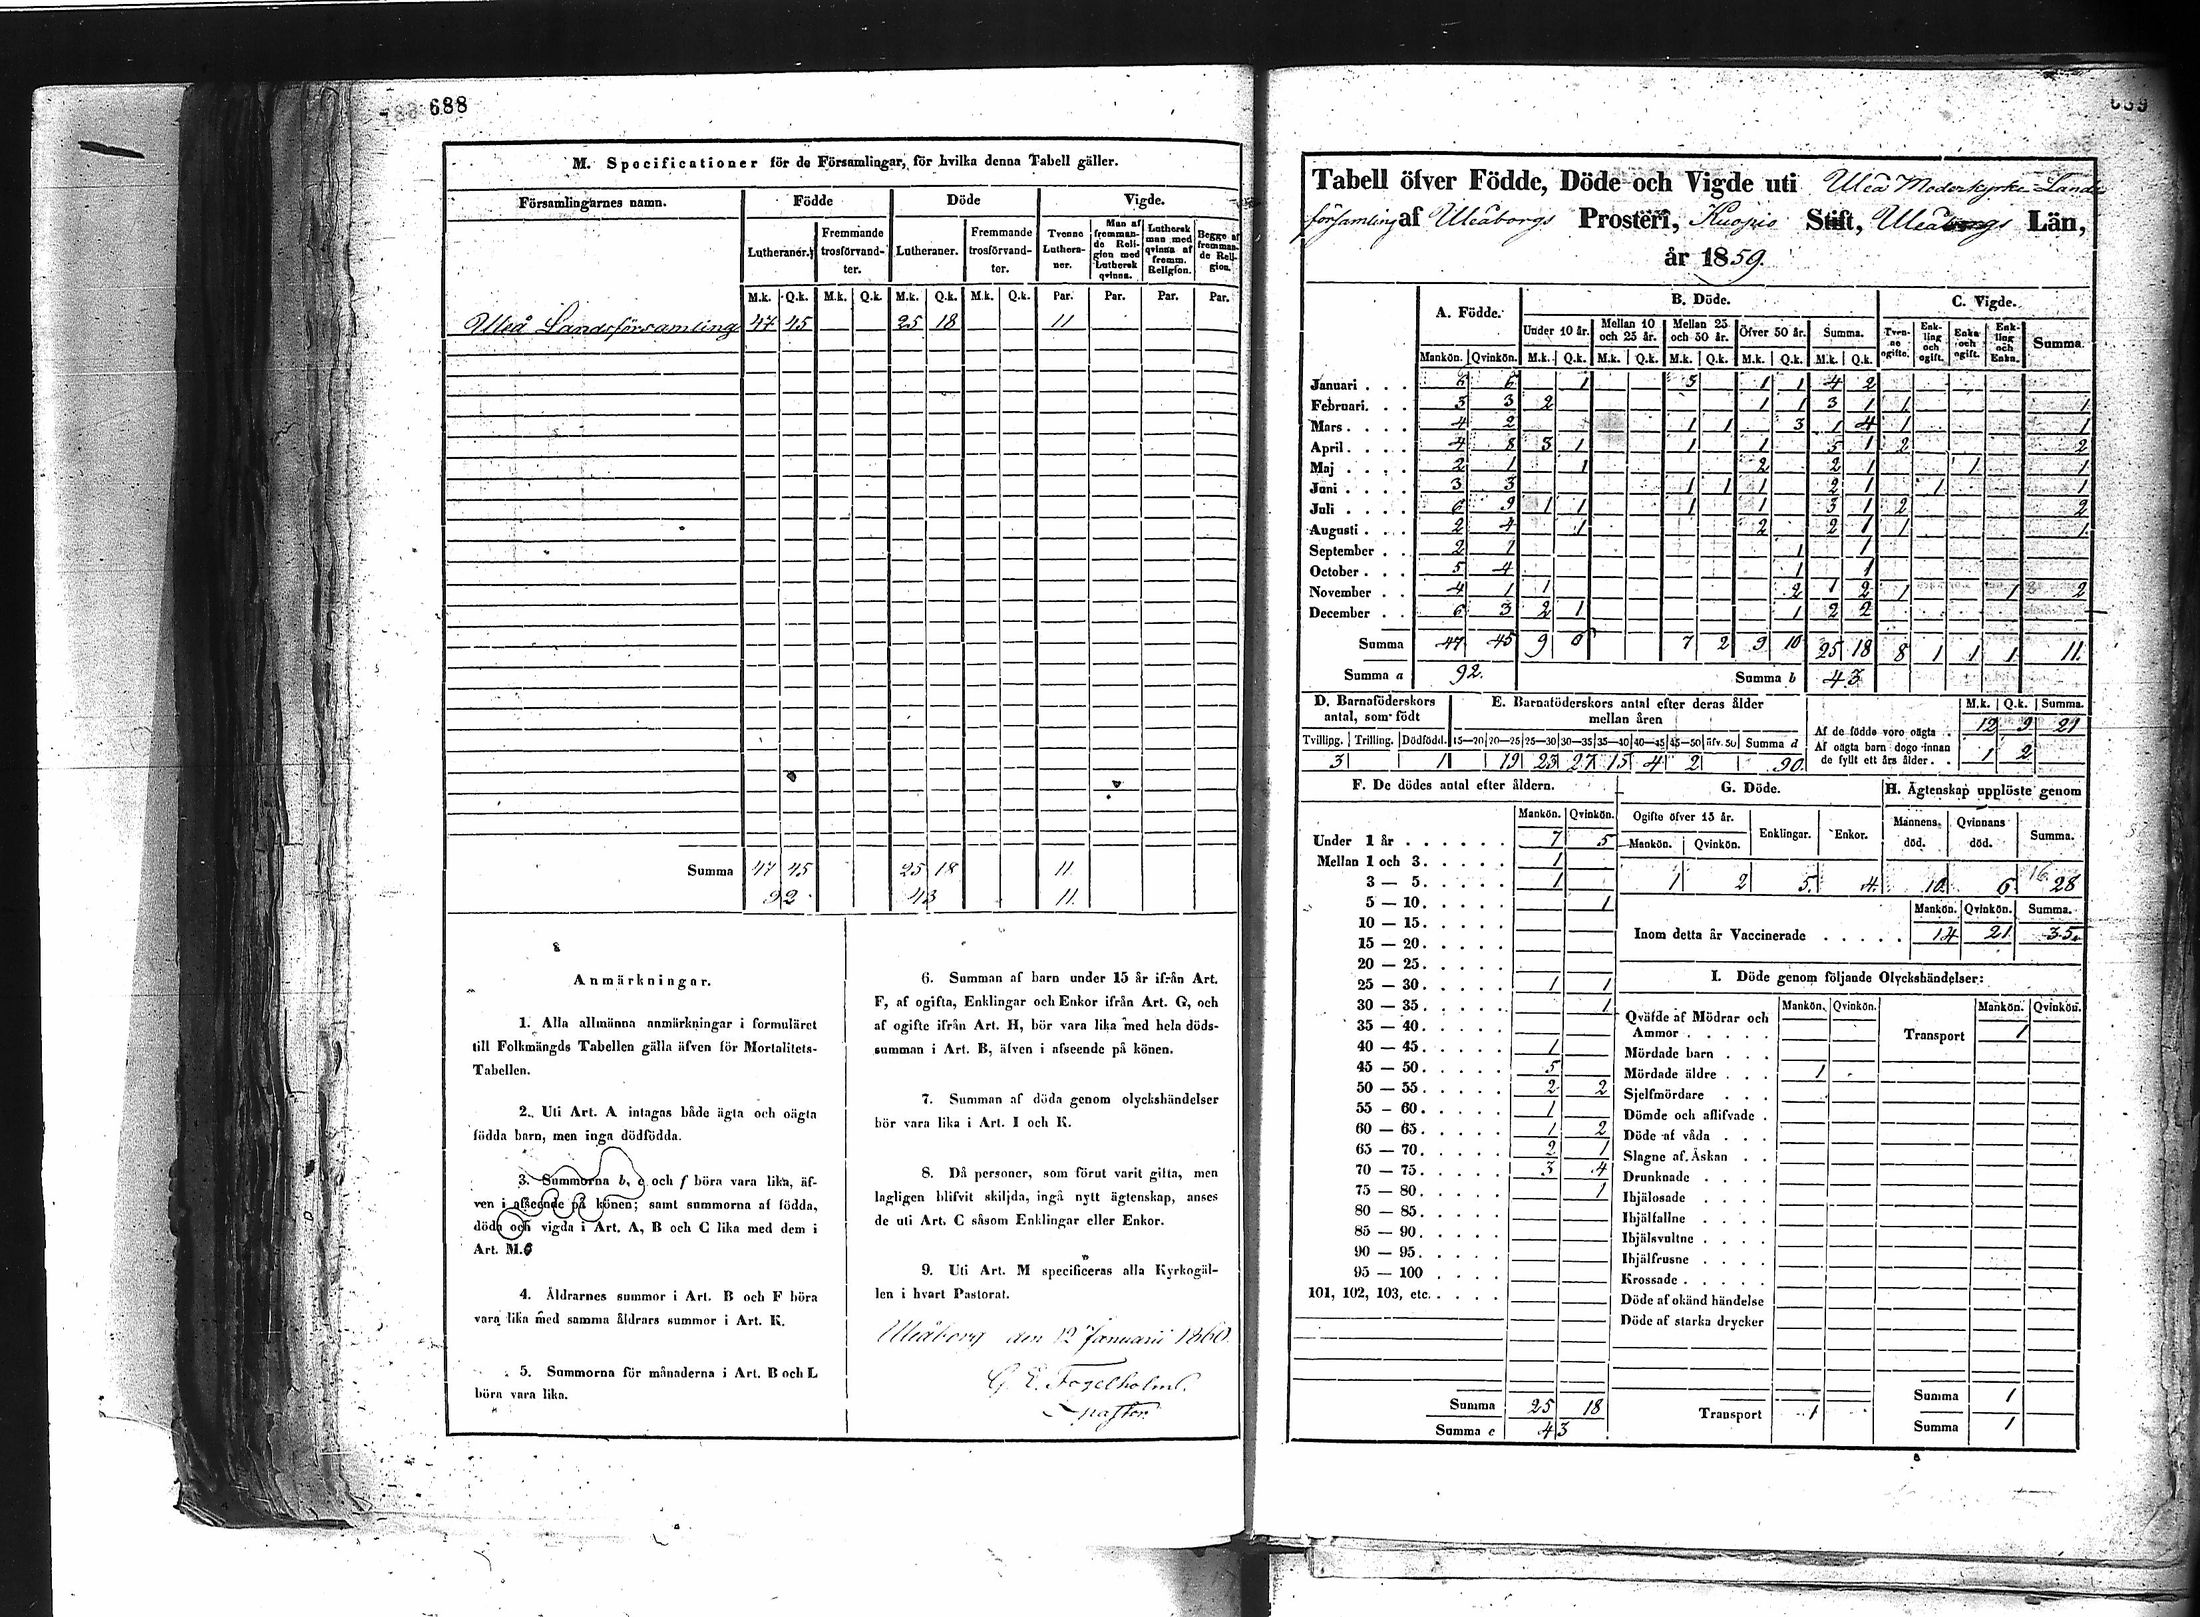 688
M. Specificationer för de Församlingar, för hvilka denna Tabell gäller.
Församlingarnes namn. Födde Döde Vigde.
Lutheraner. Fremmande trosförvandter. Lutheraner. Fremmande trosförvandter. Tvenne Lutheraner. Man af fremmande Religion med Luthersk qvinna. Luthersk man med qvinna af fremm. Religion. Begge af fremmande Religion.
M.k. Q.k. M.k. Q.k. M.k. Q.k. M.k. Q.k. Par. Par. Par. Par.
Uleå Landsförsamling 47 45 25 18 11
Summa 47 45 25 18 11
92 43 11.
Anmärkningar.
1. Alla allmänna anmärkningar i formuläret
till Folkmängds Tabellen gälla äfven för Mortalitets-
Tabellen.
2. Uti Art. A intagas både ägta och oägta
födda barn, men inga dödfödda.
3. Summorna b, c och f böra vara lika, äf-
ven i afseende på könen; samt summorna af födda,
döda och vigda i Art. A, B och C lika med dem i
Art. M.
4. Åldrarnes summor i Art. B och F böra
vara lika med samma åldrars summor i Art. K.
5. Summorna för månaderna i Art. B och L
böra vara lika.
6. Summan af barn under 15 år ifrån Art.
F, af ogifta, Enklingar och Enkor ifrån Art. G, och
af ogifte ifrån Art. H, bör vara lika med hela döds-
summan i Art. B, äfven i afseende på könen.
7. Summan af döda genom olyckshändelser
bör vara lika i Art. I och K.
8. Då personer, som förut varit gifta, men
lagligen blifvit skiljda, ingå nytt ägtenskap, anses
de uti Art. C såsom Enklingar eller Enkor.
9. Uti Art. M specificeras alla Kyrkogäl-
len i hvart Pastorat.
Uleåborg den 12 Januarii 1860.
G. E. Fogelholm.
Tabell öfver Födde, Döde och Vigde uti Uleå Moderkyrko Lands
församling af Uleåborgs Prosteri, Kuopio Stift, Uleåborgs Län,
år 1859.
A. Födde. B. Döde. C. Vigde.
Under 10 år. Mellan 10 och 25 år. Mellan 25 och 50 år. Öfver 50 år. Summa. Tvenne ogifte. Enkling och ogift. Enka och ogift. Enkling och Enka. Summa.
Mankön. Qvinkön. M.k. Q.k. M.k. Q.k. M.k. Q.k. M.k. Q.k. M.k. Q.k.
Januari . . . 6 6 1 3 1 1 4 2
Februari. . . 3 3 2 1 1 3 1 1 1
Mars . . . . 4 2 1 1 3 1 4 1 1
April. . . . 4 8 3 1 1 1 5 1 2 2
Maj . . . . 2 1 1 2 2 1 1 1
Juni . . . . 3 3 1 1 1 2 1 1 1
Juli . . . . 6 9 1 1 1 1 3 1 2 2
Augusti . . . 2 4 1 2 2 1 1 1
September . . 2 1 1 1
October . . . 5 4 1 1
November . . 4 1 1 2 1 2 1 1 2
December . . 6 3 2 1 1 2 2
Summa 47 45 9 7 2 9 10 25 18 8 1 1 1 11.
Summa a 92. Summa b 43
D. Barnaföderskors antal, som födt
Tvilling. Trilling. Dödfödd.
3 1
E. Barnaföderskors antal efter deras ålder mellan åren
15—20 20—25 25—30 30—35 35—40 40—45 45—50 öfv. 50 Summa d
19 23 27 15 4 2 90.
M.k. Q.k. Summa.
Af de födde voro oägta . 12 9 21
Af oägta barn dogo innan
de fyllt ett års ålder. . 1 2
F. De dödes antal efter åldern.
Mankön. Qvinkön.
Under 1 år . . . . . . 7 5
Mellan 1 och 3. . . . . 1
3 — 5. . . . . 1
5 — 10. . . . . 1
10 — 15. . . . .
15 — 20. . . . .
20 — 25. . . . .
25 — 30. . . . . 1 1
30 — 35. . . . . 1
35 — 40. . . . .
40 — 45. . . . . 1
45 — 50. . . . . 5
50 — 55. . . . . 2 2
55 — 60. . . . . 1
60 — 65. . . . . 1 2
65 — 70. . . . . 2 1
70 — 75. . . . . 3 4
75 — 80. . . . . 1
80 — 85. . . . .
85 — 90. . . . .
90 — 95. . . . .
95 — 100 . . . .
101, 102, 103, etc. . . . .
Summa 25 18
Summa c 43
G. Döde.
Ogifte öfver 15 år. Enklingar. Enkor.
Mankön. Qvinkön.
1 2 5. 4.
H. Ägtenskap upplöste genom
Mannens död. Qvinnans död. Summa.
10. 6 16. 28
Mankön. Qvinkön. Summa.
Inom detta år Vaccinerade . . . . . 14 21 35.
I. Döde genom följande Olyckshändelser:
Mankön. Qvinkön. Mankön. Qvinkön.
Qväfde af Mödrar och
Ammor . . . . . Transport 1
Mördade barn . . .
Mördade äldre . . . 1
Sjelfmördare . . .
Dömde och aflifvade .
Döde af våda . . .
Slagne af Åskan . .
Drunknade . . . .
Ihjälosade . . . .
Ihjälfallne . . . .
Ihjälsvultne . . . .
Ihjälfrusne . . . .
Krossade . . . . .
Döde af okänd händelse
Döde af starka drycker
Summa 1
Transport 1
Summa 1